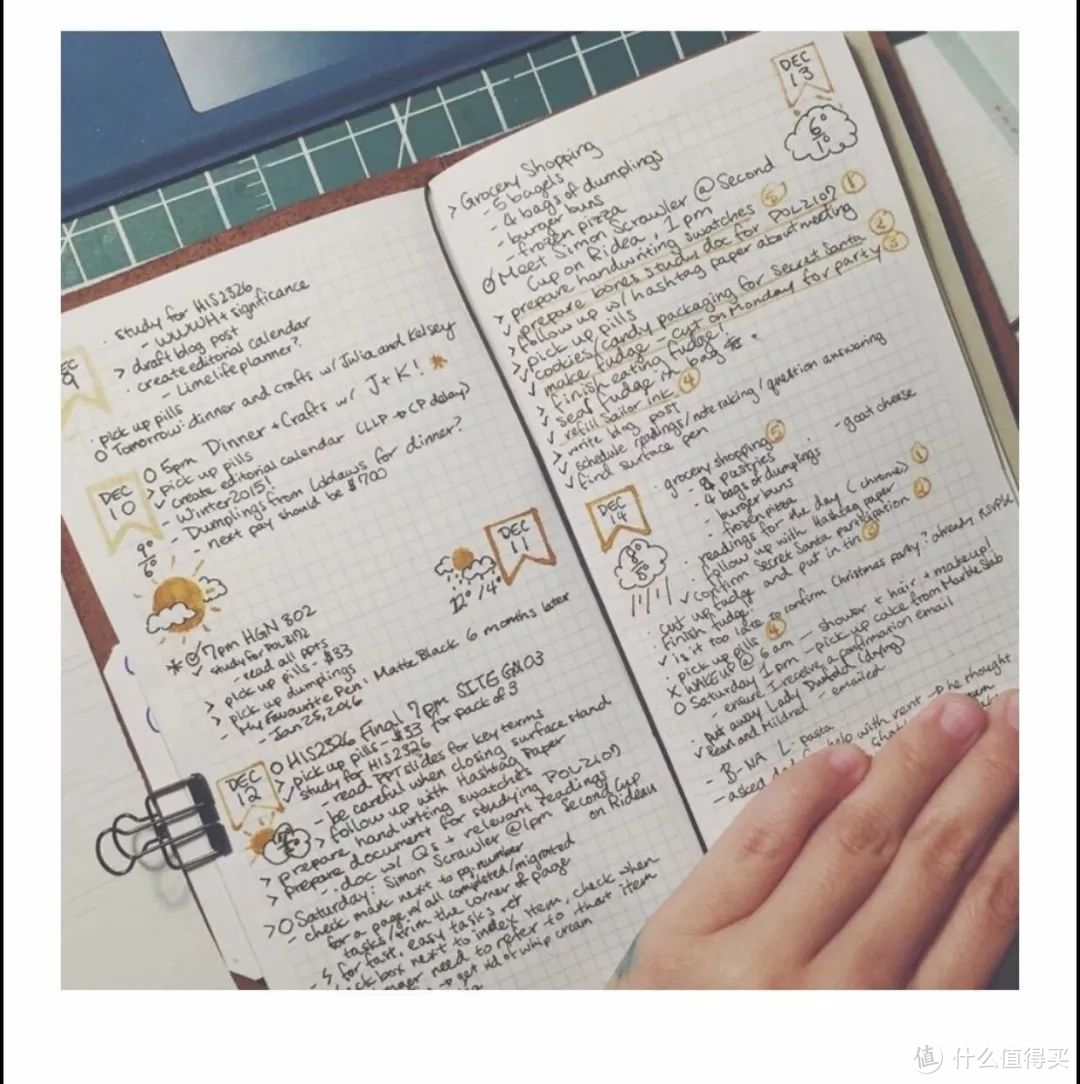 DEC
9
· study for HIS2326
- WWWH + significance
> draft blog post
· create editorial calendar
- Limelifeplanner?
· pick up pills
O Tomorrow: dinner and crafts w/ Julia and Kelsey
DEC
10
9°
6°
O 5pm Dinner + Crafts w/ J+K! *
> pick up pills
✓ create editorial calendar (LLP → CP delay)
- Winter 2015!
- Dumplings from for dinner?
- next pay should be $700
DEC
11
12°/4°
* 7pm HGN 302
✓ study for POL3172
- read all ppts
> pick up pills - $33
> pick up dumplings
> My Favourite Pen: Matte Black 6 months later
- Jan 25, 2016
DEC
12
O HIS2326 Final 7pm SITE G0103
> pick up pills - $33 for pack of 3
✓ study for HIS2326
- read PPT slides for key terms
- be careful when closing surface stand
> follow up with Hashtag Paper
> prepare handwriting swatches
> prepare document for studying POL2107
- doc w/ Qs + relevant readings
>O Saturday: Simon Scrawler @1pm Second Cup
on Rideau
- check mark next to pg. number
for a page w/ all completed/migrated
tasks/trim the corner of page
- for fast, easy tasks
box next to index item, check when
longer need to refer to that item
→ get rid of whip cream
DEC
13
6°
1°
> Grocery Shopping
- 5 bagels
- 4 bags of dumplings
- burger buns
- frozen pizza
Meet Simon Scrawler @ Second
Cup on Rideau, 1pm
> prepare handwriting swatches 5
✓ prepare bones study doc for POL2107 1
> follow up w/ hashtag paper about meeting
> pick up pills
✓ cookies/candy packaging for Secret Santa 2
✓ make fudge - cut on Monday for party 3
> finish eating fudge!
✓ seal fudge in bag
✓ refill Sailor ink 4
> write blog post
✓ schedule readings/note taking/question answering
✓ find surface pen
DEC
14
8°
5°
· grocery shopping 5
- 8 pastries
- goat cheese
- 4 bags of dumplings
- burger buns
- frozen pizza
· readings for the day (chrome) 1
· follow up with Hashtag paper
✓ confirm Secret Santa participation 2
· cut up fudge and put in tin 3
· finish fudge!
✓ is it too late to confirm Christmas party? already RSVP'd
· pick up pills 4
X WAKE UP @ 6am - shower + hair + makeup!
O Saturday 1pm - pick up cake from Marble Slab
- ensure I receive a confirmation email
· put away Lady (drying)
✓ Bean and Mildred - emailed
- B-WA L- pasta
- asked help with rent → he thought